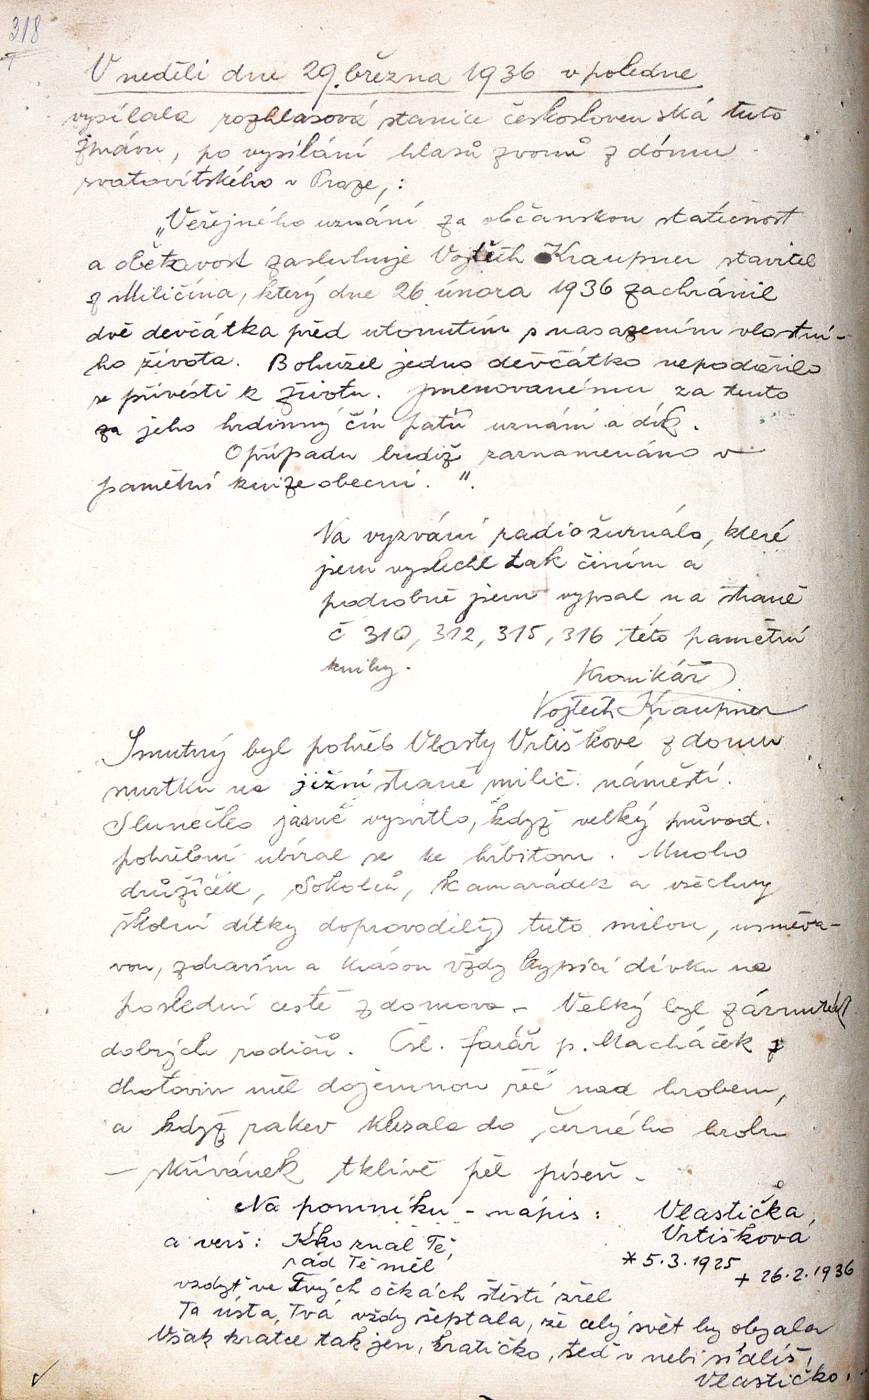 318
V neděli dne 29. března 1936 v poledne
vysílala rozhlasová stanice československá tuto
zprávu, po vysílání hlasů zvonů z dómu
svatovítského v Praze,:
„Veřejného uznání za občanskou statečnost
a obětavost zasluhuje Vojtěch Kraupner stavitel
z Miličína, který dne 26 února 1936 zachránil
dvě devčátka před utonutím s nasazením vlastní-
ho života. Bohužel jedno děvčátko nepodařilo
se přivésti k životu. Jmenovanému za tento
za jeho hrdinný čin patří uznání a dík.
O případu budiž zaznamenáno v
pamětní knize obecní."
Na vyzvání radiožurnálo, které
jsem vyslechl tak činím a
podrobně jsem vypsal na straně
č 310, 312, 315, 316 této pamětní
knihy.
Kronikář
Vojtěch Kraupner
Smutný byl pohřeb Vlasty Vrtiškové z domu
smutku na jižní straně milič. náměstí.
Slunečko jasně vysvitlo, když velký průvod.
pohřební ubíral se ke hřbitovu. Mnoho
družiček, Sokolů, kamarádek a všechny
školní dítky doprovodily tuto milou, usměva-
vou, zdravím a krásou vždy kypící dívku na
poslední cestě z domova - Velký byl zármutek
dobrých rodičů. Čsl. farář p. Macháček z
Chotovin měl dojemnou řeč nad hrobem,
a když rakev klesala do černého hrobu
— skřivánek tklivě pěl píseň -
Na pomníku - nápis: Vlastička
Vrtišková
* 5.3.1925 + 26.2.1936
a verš: Kdo znal Tě,
rád Tě měl
vzdyť ve Tvých očkách štěstí zřel
Ta ústa, Tvá vždy šeptala, že celý svět by objala
Však kratce tak jen, kratičko, teď v nebi sídlíš,
Vlastičko.